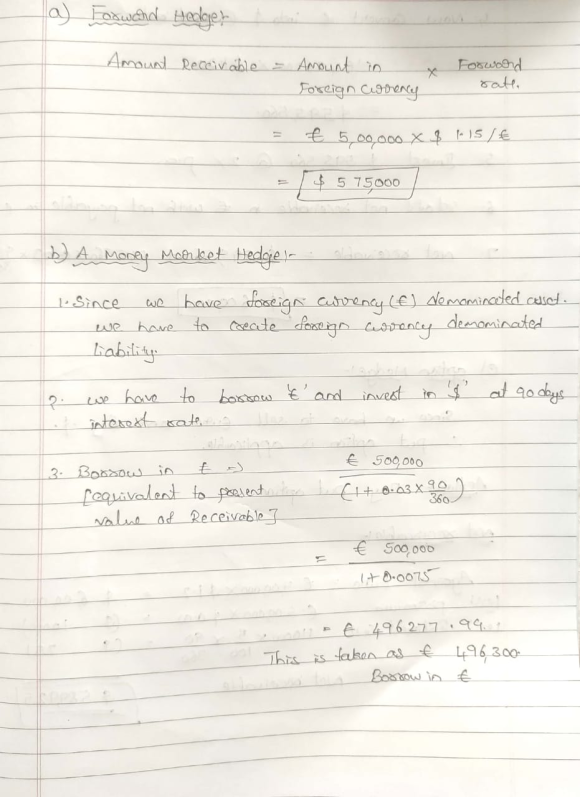 a) Forward Hedge:-
Amount Receivable = Amount in Foreign Currency × Forward rate.
= € 5,00,000 × $ 1.15/€
= $ 575000
b) A Money Market Hedge:-
1. Since we have foreign currency (€) demaminated asset.
we have to create foreign currency demominated
liability.
2. we have to borrow '€' and invest in '$' at 90 days
interest rate.
3. Borrow in € => € 500,000
[equivalent to present (1 + 0.03 × 90/360)
value of Receivable]
= € 500,000
1 + 0.0075
= € 496277.99.
This is taken as € 496,300.
Borrow in €